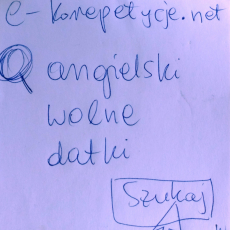 e-korepetycje.net
angielski
wolne
datki
Szukaj